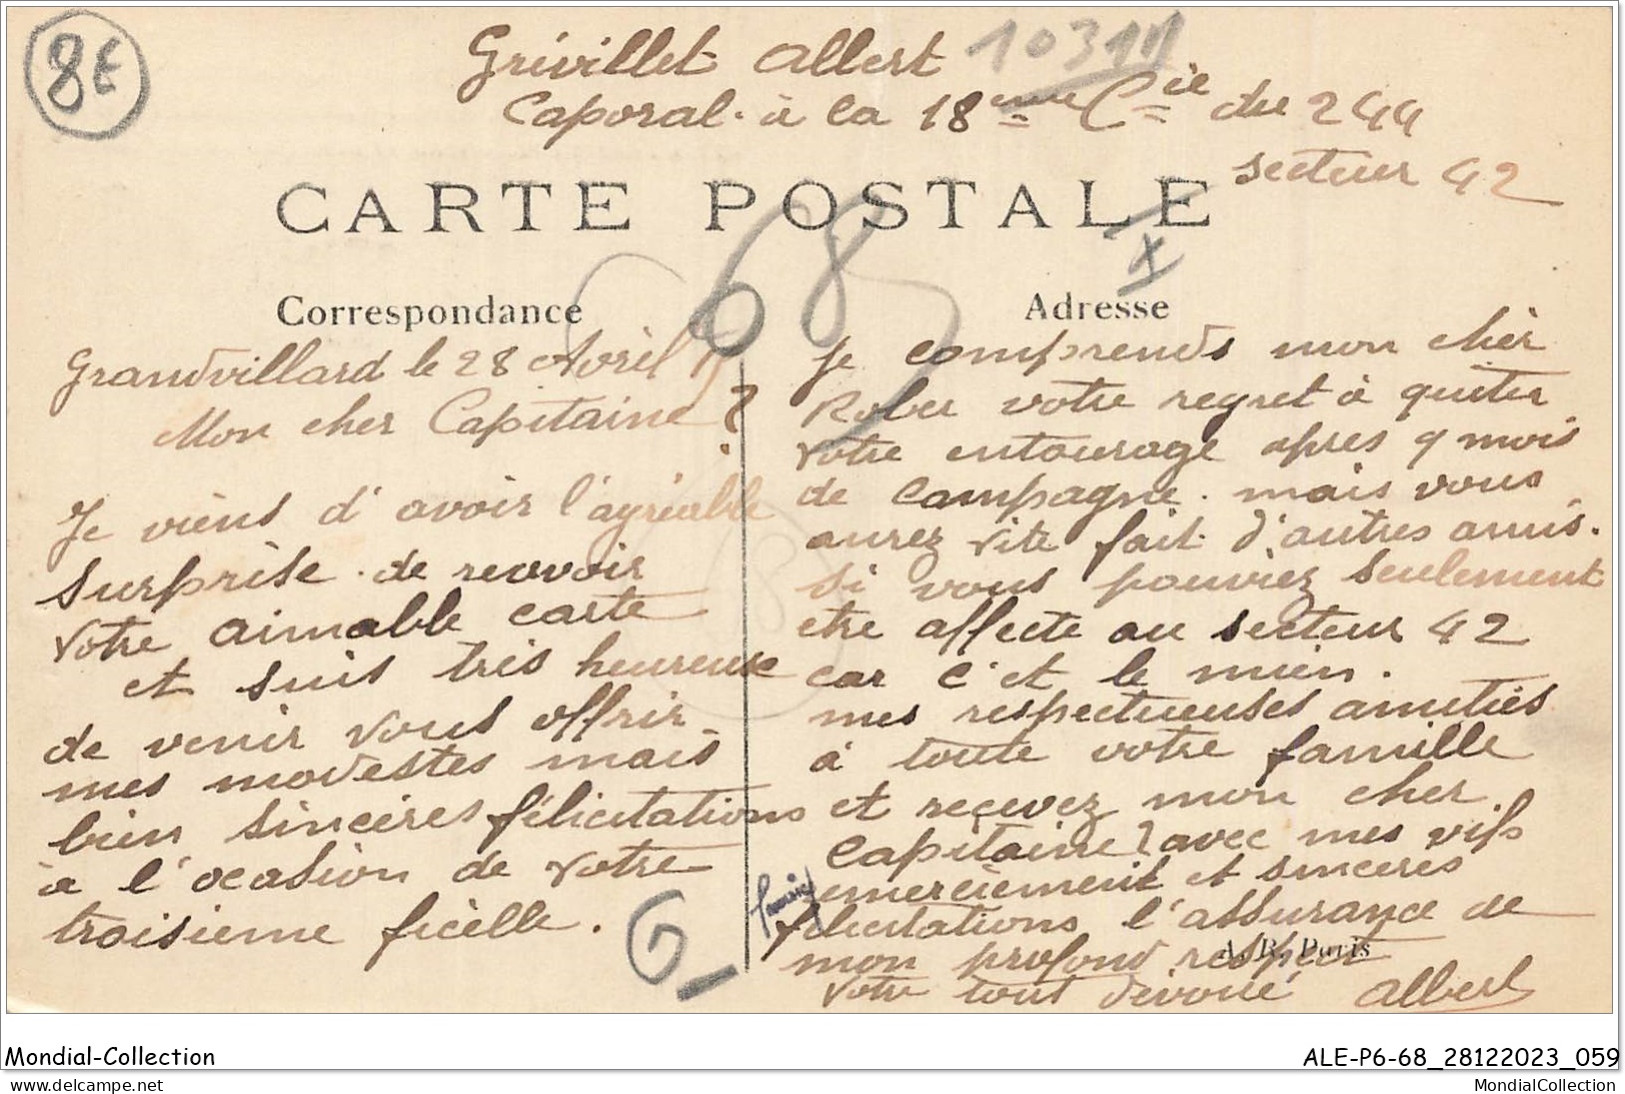 8€
10311
Grévillet Albert
Caporal à la 18eme Cie du 244
secteur 42
CARTE POSTALE
68
Correspondance
Adresse
Grandvillard le 28 Avril 15
Mon cher Capitaine
Je viens d'avoir l'agréable
surprise de revoir
votre aimable carte
et suis très heureuse
de venir vous offrir
mes modestes mais
bien sincères félicitations
à l'ocasion de votre
troisieme ficelle.
Je comprends mon cher
Rober votre regret à quiter
votre entourage apres 9 mois
de campagne. mais vous
aurez vite fait d'autres amis.
si vous pouviez seulement
etre affecte au secteur 42
car c'et le mien.
mes respectueuses amitiés
à toute votre famille
et recevez mon cher
Capitaine avec mes vifs
emerciement et sinceres
felicitations l'assurance de
mon profond respect
votre tout dévoué Albert
A. B. Paris
G-
Mondial-Collection
ALE-P6-68_28122023_059
www.delcampe.net
MondialCollection